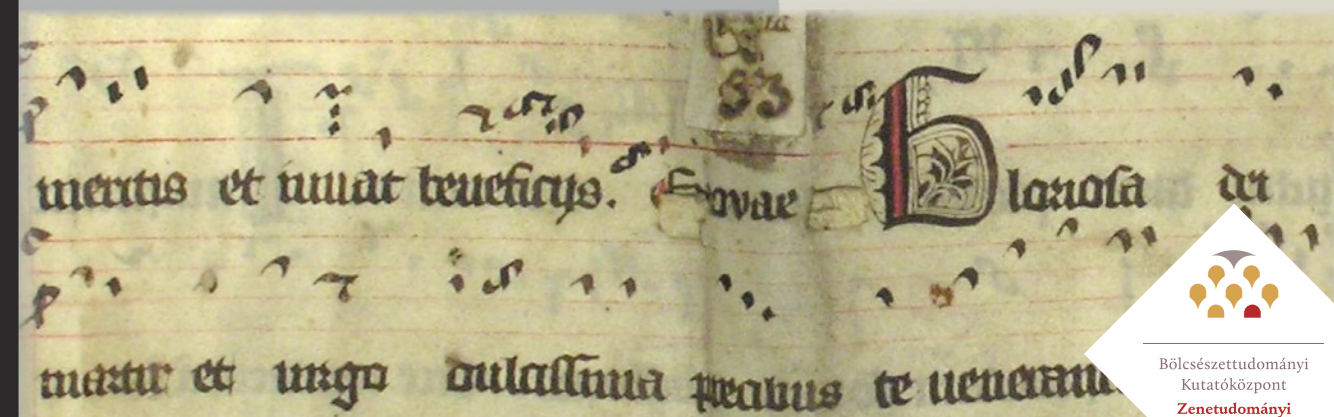 53
meritis et iuuat beneficijs. Euouae Gloriosa dei
martir et uirgo dulcissima precibus te uenerand
Bölcsészettudományi
Kutatóközpont
Zenetudományi